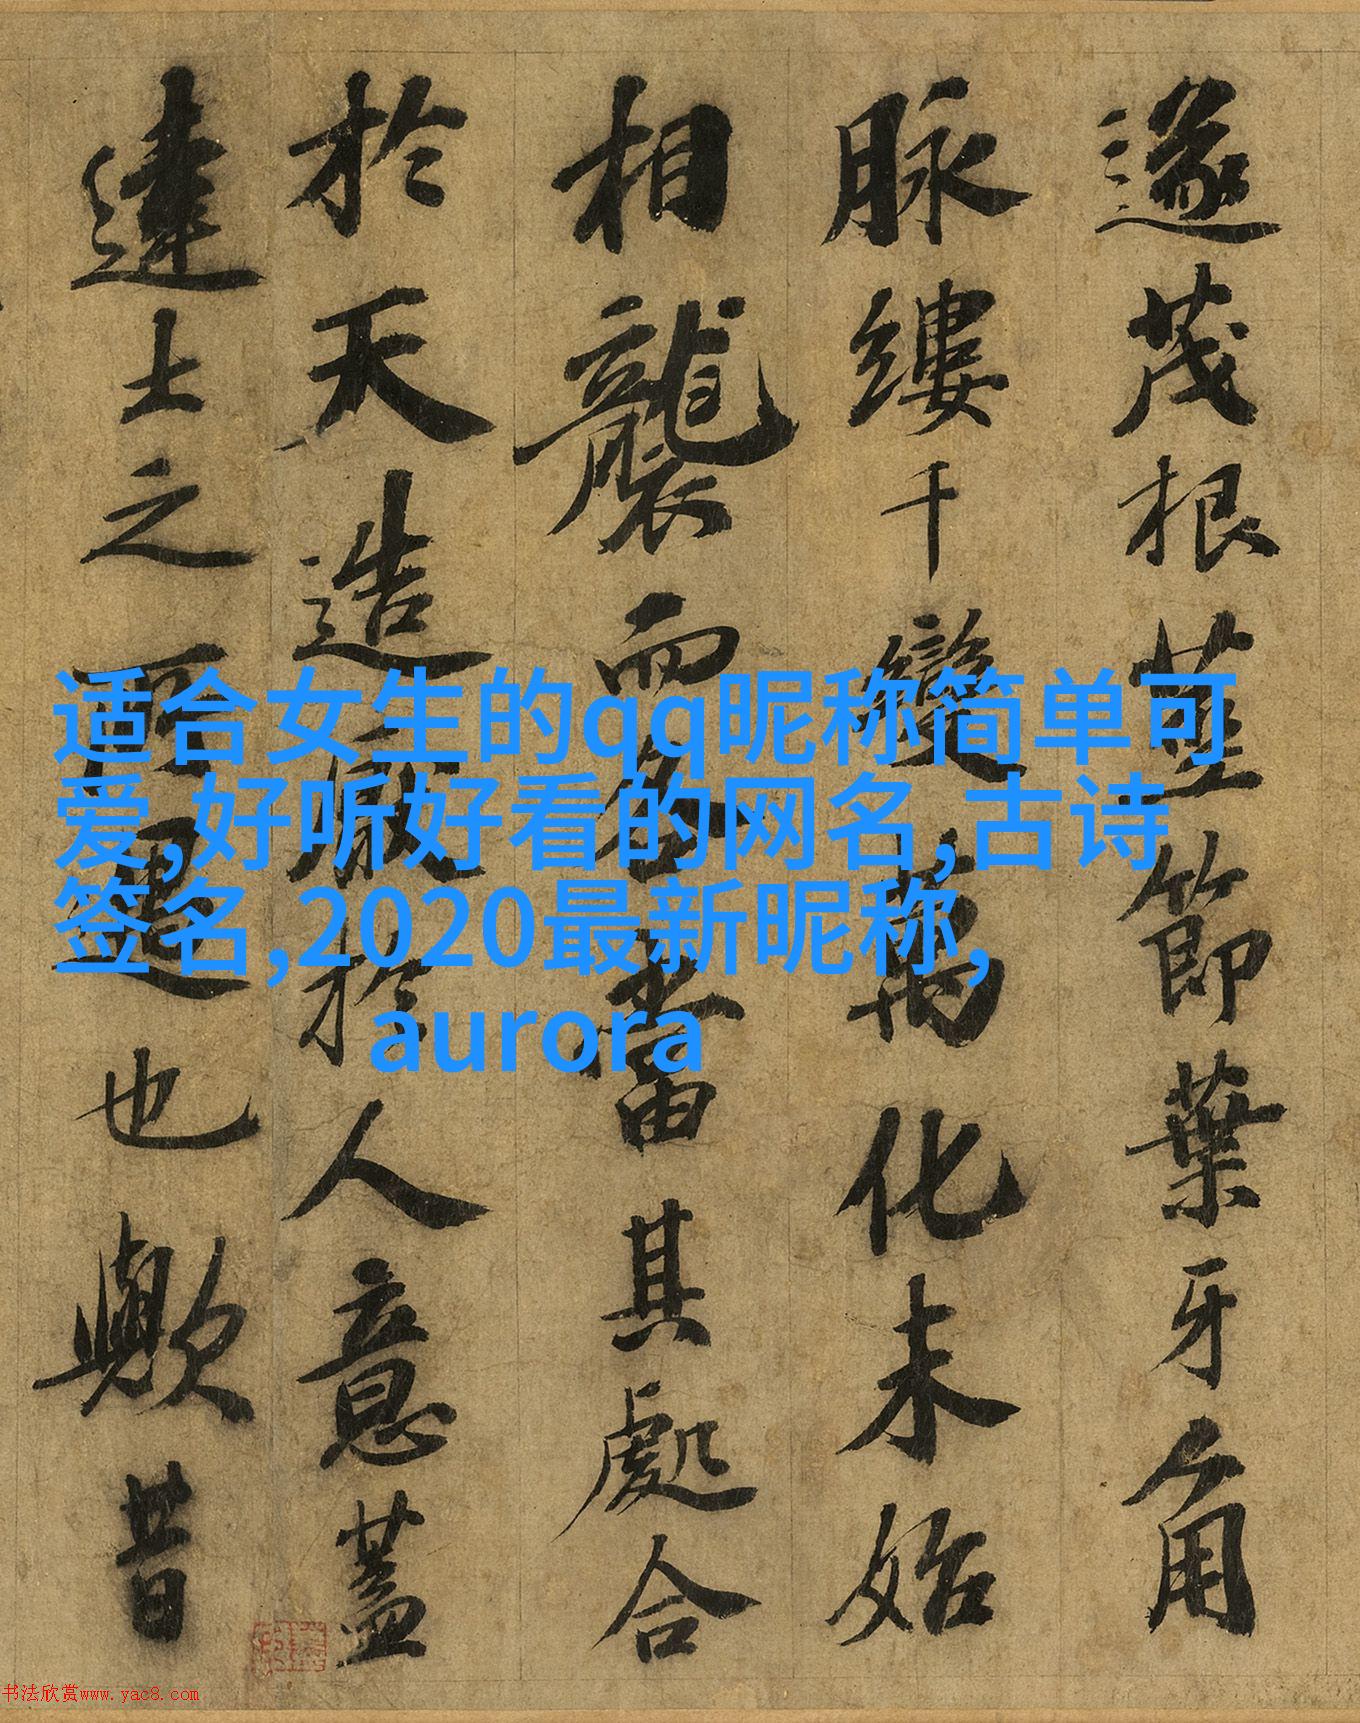 遂茂根莖節葉牙角
脉縷千變萬化未始
相襲而各當其處合
於天造厭於人意蓋
達士之所寓也歟昔
适合女生的qq昵称简单可
爱,好听好看的网名,古诗
签名,2020最新昵称,
aurora
书法欣赏www.yac8.com